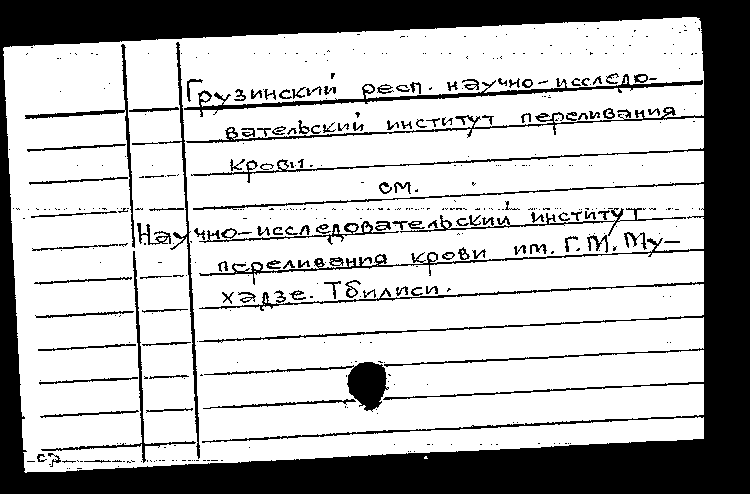 Грузинский респ. научно-исследо-
вательский институт переливания
крови.
см.
Научно-исследовательский институт
переливания крови им. Г.М. Му-
хадзе. Тбилиси.
ср